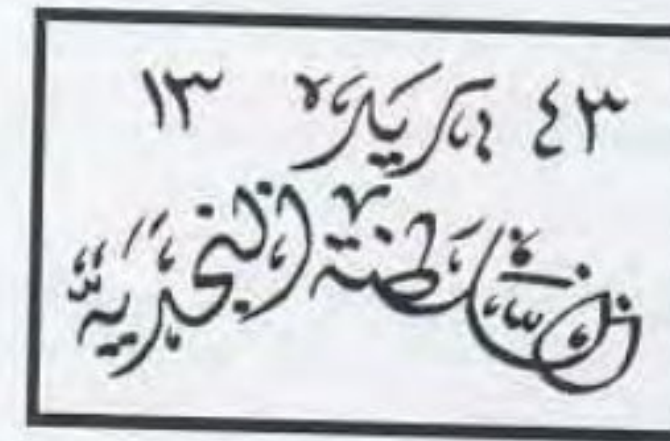 ٤٣ بريد ١٣
السلطنة النجدية